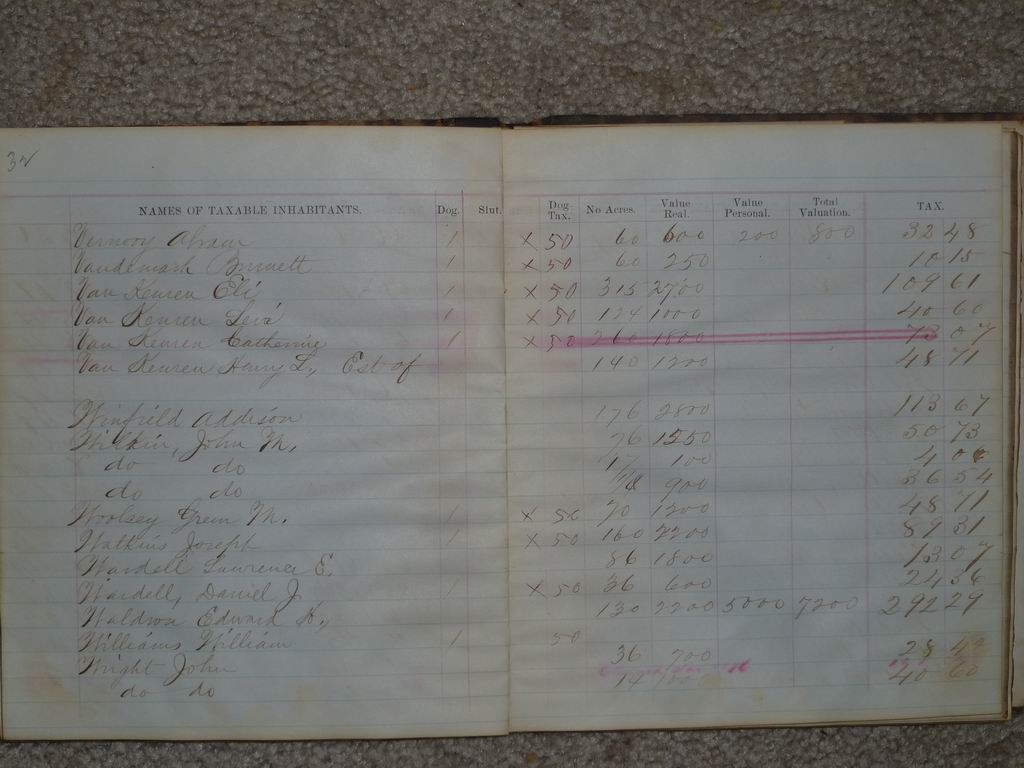 32
NAMES OF TAXABLE INHABITANTS. Dog. Slut. Dog Tax. No Acres. Value Real. Value Personal. Total Valuation. TAX.
Vernooy Abram 1 x 50 60 600 200 800 32 48
Vandemark Burnett 1 x 50 60 250 10 15
Van Keuren Eli 1 x 50 315 2700 109 61
Van Keuren Levi 1 x 50 124 1000 40 60
Van Keuren Catherine 1 x 50 260 1800 73 07
Van Keuren Harry L., Est of 140 1200 48 71
Winfield Addison 176 2800 113 67
Wilkin, John M. 76 1250 50 73
do do 17 100 4 06
do do 900 36 54
Woolsey Green M. 1 x 50 70 1200 48 71
Watkins Joseph 1 x 50 160 2200 89 31
Wardell Lawrence E. 86 1800 73 07
Wardell, Daniel J 1 x 50 36 600 24 36
Waldron Edward H., 130 2200 5000 7200 292 29
Williams William 1 50
Wright John 36 700 28 42
do do 14 40 60